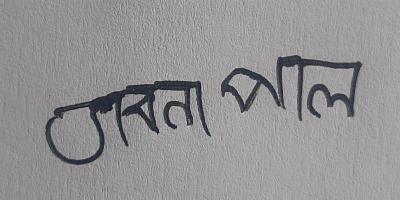 ভাবনা পাল